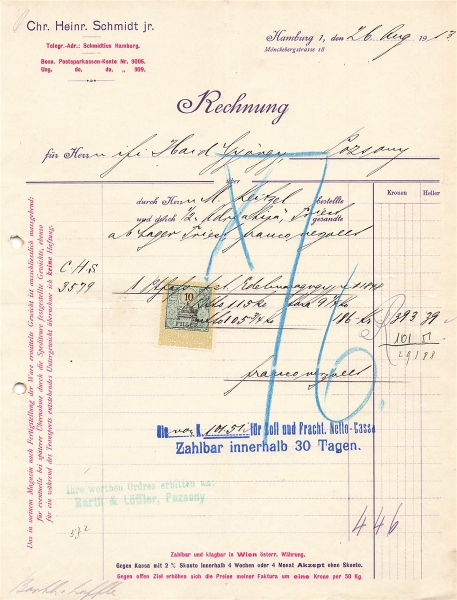 Chr. Heinr. Schmidt jr.
Telegr.-Adr.: Schmidtius Hamburg.
Bosn. Postsparkassen-Konto Nr. 9006.
Ung. do. do. „ 909.
Hamburg 1, den 26 Aug 1913
Mönckebergstrasse 18
Rechnung
für Herrn ifj. Haid György, Pozsony
über
Kronen Heller
durch Herrn M. Leitzel bestellte
und durch gesandte
ab Lager Triest franco verzollt
C.H.S
3579
10
FILLÉR
186 Kr 393 39
101 51
291 88
franco verzollt
Die von K. 101.51 für Zoll und Fracht. Netto-Cassa
Zahlbar innerhalb 30 Tagen.
Ihre werthen Ordres erbitten an:
Barth & Löffler, Pozsony
572
446
Das in meinem Magazin nach Fertigstellung der Ware ermittelte Gewicht ist ausschliesslich massgebend;
für eventuelle bei späterer Übernahme durch die Spediteure festgestellte Gewichte, ebenso
für ein während des Transports entstehendes Untergewicht übernehme ich keine Haftung.
Zahlbar und klagbar in Wien österr. Währung.
Gegen Kassa mit 2 % Skonto innerhalb 4 Wochen oder 4 Monat Akzept ohne Skonto.
Gegen offen Ziel erhöhen sich die Preise meiner Faktura um eine Krone per 50 Kg.